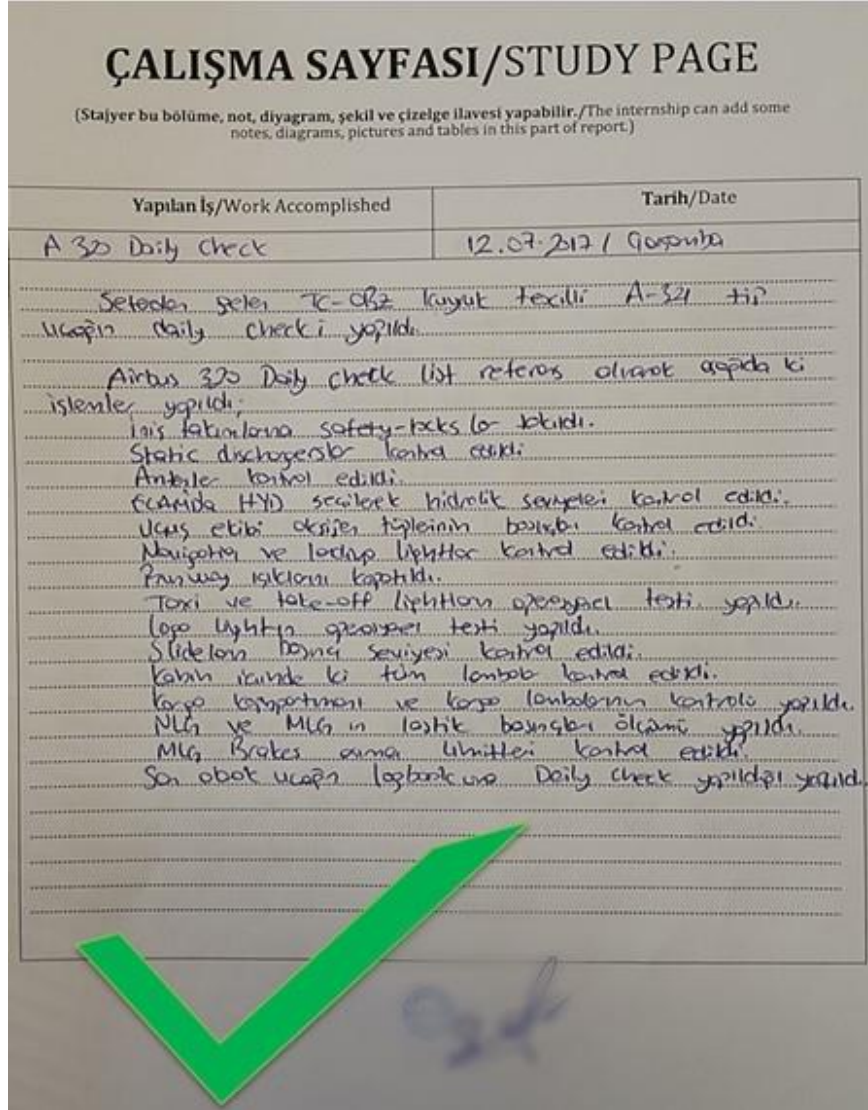 ÇALIŞMA SAYFASI/STUDY PAGE
(Stajyer bu bölüme, not, diyagram, şekil ve çizelge ilavesi yapabilir./The internship can add some
notes, diagrams, pictures and tables in this part of report.)
Yapılan İş/Work Accomplished
Tarih/Date
A 320 Daily Check
12.07.2017 / Çarşamba
Seferden gelen TC-OBZ kuyruk tescilli A-321 tip
uçağın daily check i yapıldı.
Airbus 320 Daily check list referans olarak aşağıda ki
işlemler yapıldı;
İniş takımlarına safety-locks lar takıldı.
Static dischargerslar kontrol edildi
Antenler kontrol edildi.
ECAMda HYD seçilerek hidrolik seviyeleri kontrol edildi.
Uçuş ekibi oksijen tüplerinin basıncı kontrol edildi.
Navigation ve landing lightlar kontrol edildi.
ışıkları kapatıldı.
Taxi ve take-off lightların operasyonel testi yapıldı.
Logo lightın operasyonel testi yapıldı.
Slideların basınç seviyesi kontrol edildi.
Kabin içinde ki tüm lambalar kontrol edildi.
Kargo kompartmanı ve kargo lambalarının kontrolü yapıldı.
NLG ve MLG in lastik basınçları ölçümü yapıldı.
MLG Brakes aşınma limitleri kontrol edildi.
Son olarak uçağın logbook una Daily check yapıldığı yazıldı.